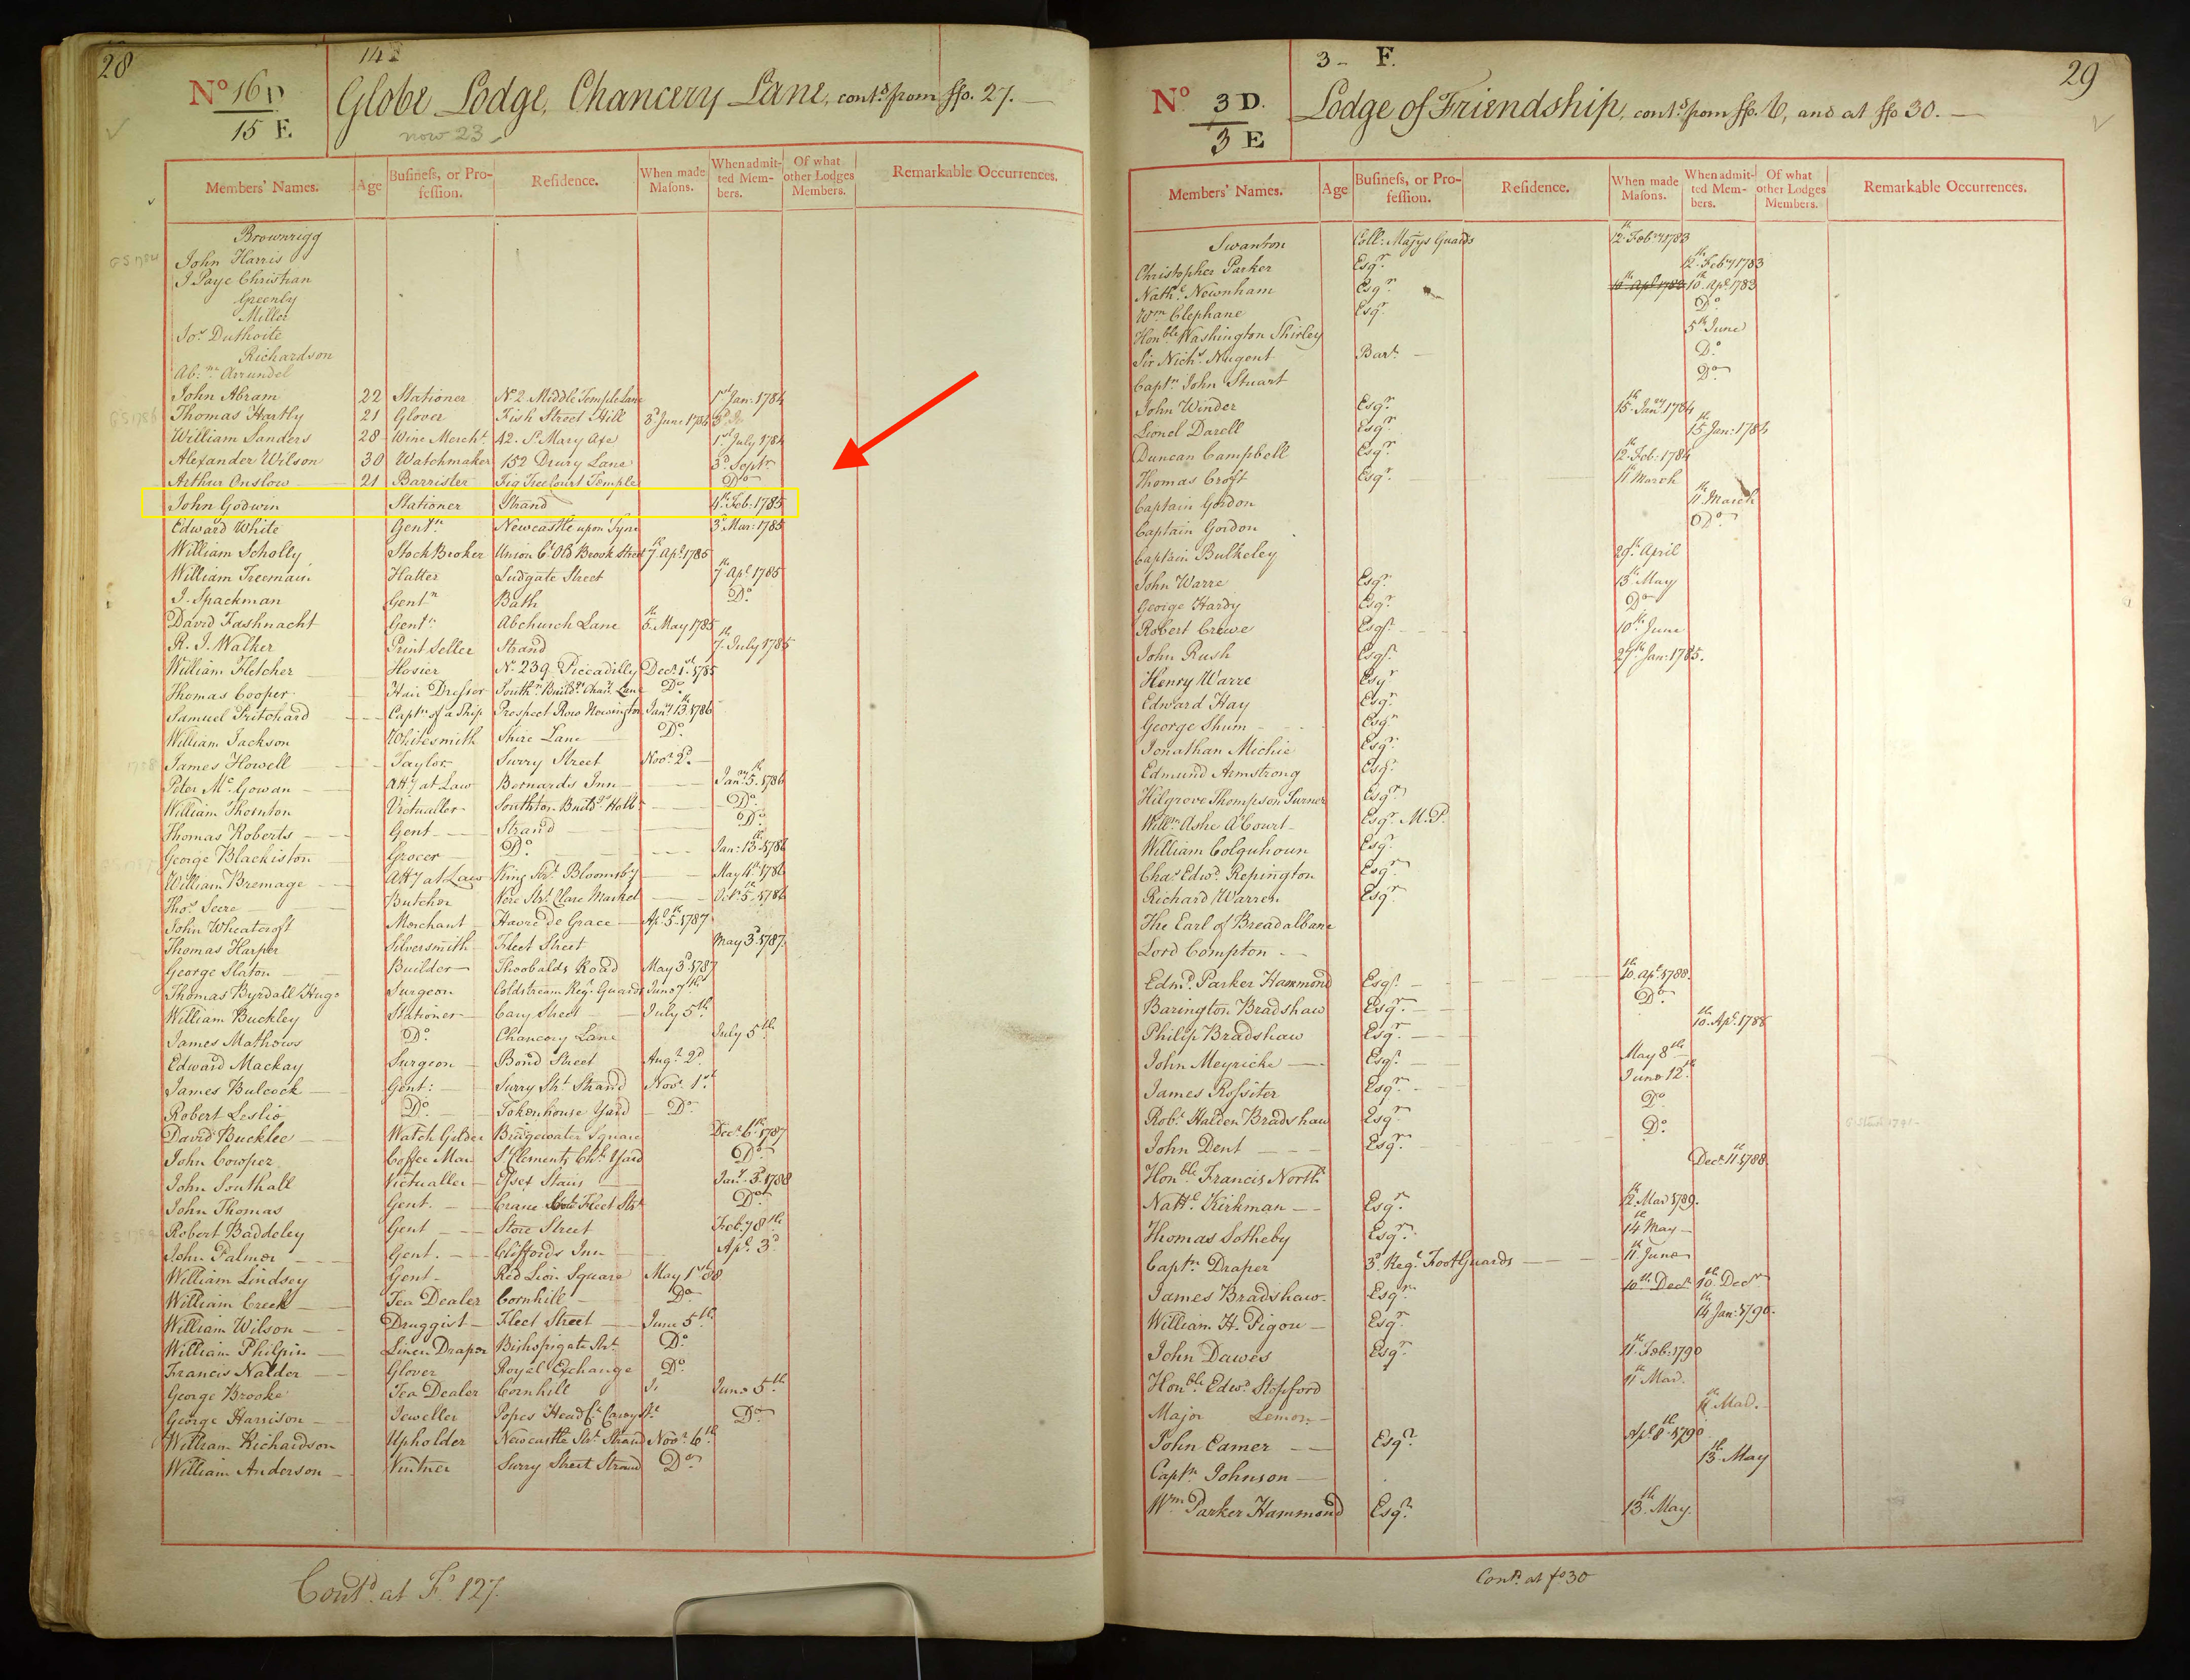 28
148
Nº 16 D.
15 E.
Globe Lodge, Chancery Lane, contd. from ffo. 27.
now 23
Members' Names. Age Busineſs, or Profeſſion. Reſidence. When made Maſons. When admitted Members. Of what other Lodges Members. Remarkable Occurrences.
Brownrigg
John Harris
J Paye Christian
Greenly
Miller
Jos. Duthoite
Richardson
Abm. Arrundel
John Abram 22 Stationer No 2 Middle Temple Lane 1st Jan: 1784
Thomas Hartly 21 Glover Fish Street Hill 3d June 1784
William Sanders 28 Wine Mercht. 42. St Mary Axe 1st July 1784
Alexander Wilson 30 Watchmaker 152 Drury Lane 3d Septr.
Arthur Onslow 21 Barrister Fig Tree Court Temple Do
John Godwin Stationer Strand 4th Feb: 1785
Edward White Gentn Newcastle upon Tyne 3d Mar: 1785
William Scholey Stock Broker Union Ct. Old Broad Street 7th Apl. 1785
William Freeman Hatter Ludgate Street 7th Apl 1785
J. Spackman Gentn Bath Do.
David Fashnacht Gentn Abchurch Lane 5th May 1785
R. J. Walker Print Seller Strand 7th July 1785
William Fletcher Hosier No. 239 Piccadilly Decr. 1st 1785
Thomas Cooper Hair Dresser Southn. Buildgs. Chan. Lane Do.
Samuel Pritchard Captn of a Ship Prospect Row Newington Jany 13th 1786
William Jackson Whitesmith Shire Lane Do.
James Howell Taylor Surry Street Novr 2d.
Peter Mc.Gowan Atty at Law Bernards Inn Jany 5th 1786
William Thornton Victualler Southton. Buildgs Holb Do.
Thomas Roberts Gent Strand Do
George Blackiston Grocer Do. Jan: 13th 1786
William Bremage Atty at Law King Str. Bloomsby May 4th 1786
Thos. Seere Butcher Vere Str. Clare Market Octr. 5th 1786
John Wheatcroft Merchant Havre de Grace Apl 5th 1787
Thomas Harper Silversmith Fleet Street May 3d 1787
George Slaton Builder Theobalds Road May 3d 1787
Thomas Byrdall Hugo Surgeon Coldstream Regt. Guards June 7th
William Buckley Stationer Cary Street July 5th
James Mathows Do. Chancery Lane July 5th
Edward Mackay Surgeon Bond Street Augt. 2d
James Bulcock Gent: Surry Str Strand Novr. 1st
Robert Leslie Do. Tokenhouse Yard Do
David Bucklee Watch Gilder Bridgewater Square Decr. 6th 1787
John Cowper Coffee Man St Clements Chh. Yard Do
John Southall Victualler Essex Stairs Jany. 3d 1788
John Thomas Gent. Crane Court Fleet Str Do
Robert Baddeley Gent Store Street Feby 8th
John Palmer Gent. Cliffords Inn Apl. 3d
William Lindsey Gent Red Lion Square May 1st 88
William Creek Tea Dealer Cornhill Do
William Wilson Druggist Fleet Street June 5th
William Philpin Linen Draper Bishopsgate Str. Do
Francis Nalder Glover Royal Exchange Do
George Brooke Tea Dealer Cornhill June 5th
George Harrison Jeweller Popes Head Do
William Richardson Upholder Newcastle Str. Strand Novr. 6th
William Anderson Vintner Surry Street Strand Do
Contd. at Fo 127.
29
3 - F.
Nº 3 D.
3 E
Lodge of Friendship, contd. from ffo. 6, and at ffo 30.
Members' Names. Age Buſineſs, or Profeſſion. Reſidence. When made Maſons. When admitted Members. Of what other Lodges Members. Remarkable Occurrences.
Swanton Coll: Majys Guards 12th Feby 1783
Christopher Parker Esqr. 12th Feby 1783
Nathl. Newnham Esqr. 10th Apl 1783 10th Apl 1783
Wm Clephane Esqr. Do
Honble Washington Shirley 5th June
Sir Nichs. Nugent Bart. Do.
Captn. John Stuart Do
John Winder Esqr. 15th Jany. 1784
Lionel Darell Esqr. 15th Jan: 1784
Duncan Campbell Esqr. 12th Feb: 1784
Thomas Croft Esqr. 11th March
Captain Gordon 11th March
Captain Gordon Do
Captain Bulkeley 29th April
John Warre Esqr. 13th May
George Hardy Esqr. Do
Robert Crewe Esqr. 10th June
John Rush Esqr. 27th Jan: 1785.
Henry Warre Esqr
Edward Hay Esqr.
George Shum Esqr
Jonathan Michie Esqr.
Edmund Armstrong Esqr.
Hilgrove Thompson Turner Esqr.
Willm. Ashe A'Court Esqr. M.P.
William Colquhoun Esqr.
Chas. Edwd. Repington Esqr.
Richard Warren Esqr.
The Earl of Breadalbane
Lord Compton
Edmd. Parker Hammond Esqr. 10th Apl. 1788.
Barington Bradshaw Esqr. Do.
Philip Bradshaw Esqr. 10th Apl. 1788
John Meyricke Esqr. May 8th
James Rossiter Esqr. June 12th
Robt. Halden Bradshaw Esqr. Do
John Dent Esqr. Do.
Honble Francis North Decr. 11th 1788.
Nathl. Kirkman Esqr. 12th Mar 1789.
Thomas Sotheby Esqr. 14th May
Captn. Draper 3d. Regt. Foot Guards 11th June
James Bradshaw Esqr. 10th Decr 10th Decr
William H. Pigou Esqr. 14th Jan: 1790.
John Dawes Esqr. 11th Feb: 1790
Honble. Edwd Stopford 11th Mar.
Major Lemon 11th Mar.
John Eamer Esqr. Apl 8th 1790
Captn Johnson 13th May
Wm Parker Hammond Esqr. 13th May.
Contd. at fo 30